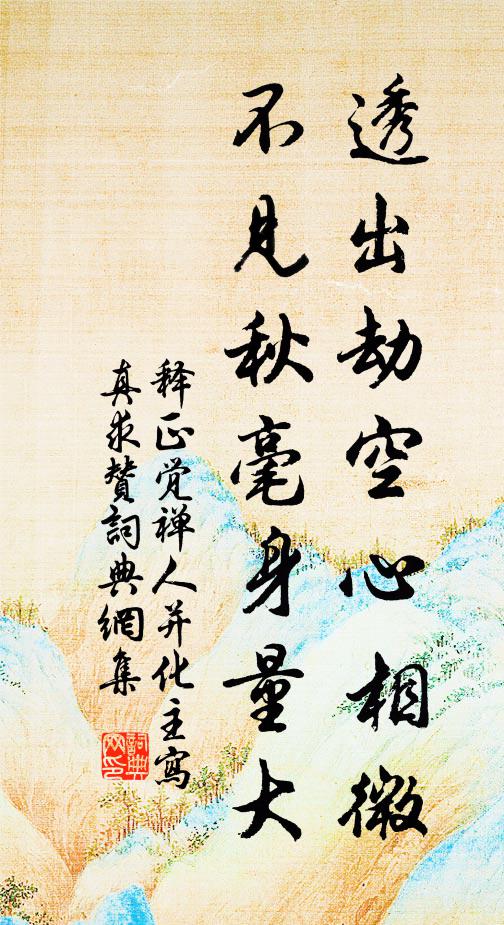 透出劫空心相微
不见秋毫身量大
释正觉禅人并化主写
真求赞词典网集
词典
网印